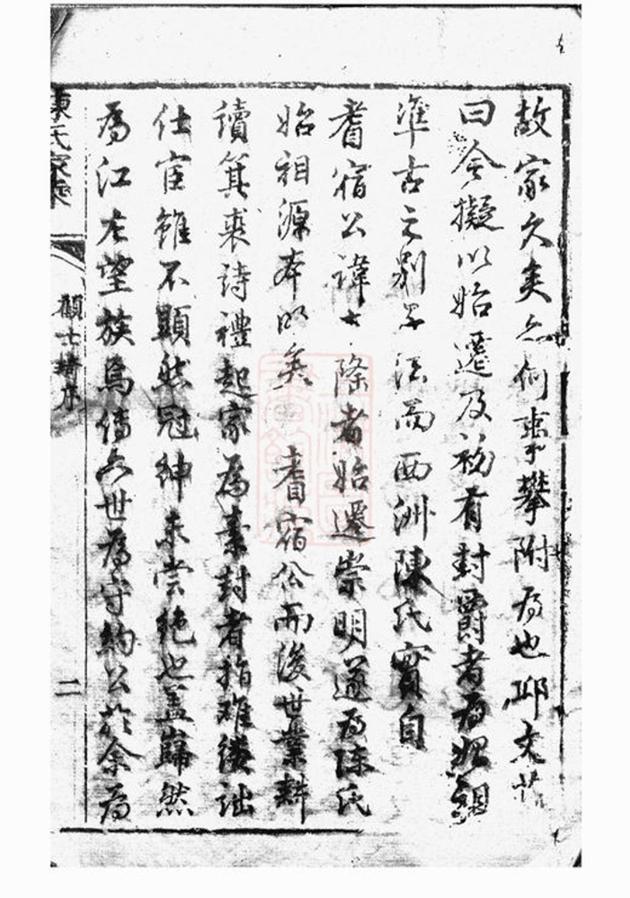 故家久矣亦何事攀附為也邱文莊
曰今擬以始遷及初有封爵者為始祖
準古之別子法而西洲陳氏實自
耆宿公諱士隆者始遷崇明遂為陳氏
始祖源本昭矣耆宿公而後世業耕
讀箕裘詩禮起家為素封者指難僂詘
仕宦雖不顯然冠紳未嘗絕也蓋巋然
為江左望族焉傳六世為守約公於余為
陳氏家乘
顧士璉序
二